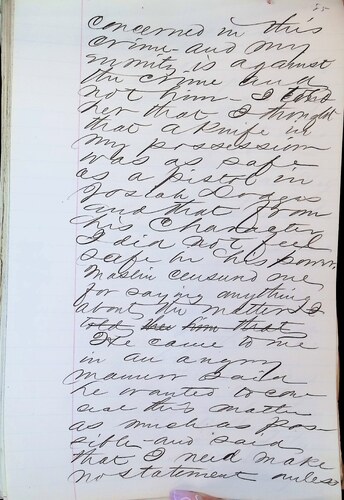 25
concerned in this
crime and my
enmity is against
the crime and
not him - I told
her that I thought
that a knife in
my possession
was as safe
as a pistol in
Josiah Dodges
and that from
his Character
I did not feel
safe in his power.
Maslin censured me
for saying anything
about the matter I
told her him that
He came to me
in an angry
manner said
he wanted to con-
ceal this matter
as much as pos-
sible and said
that I need make
no statement unless